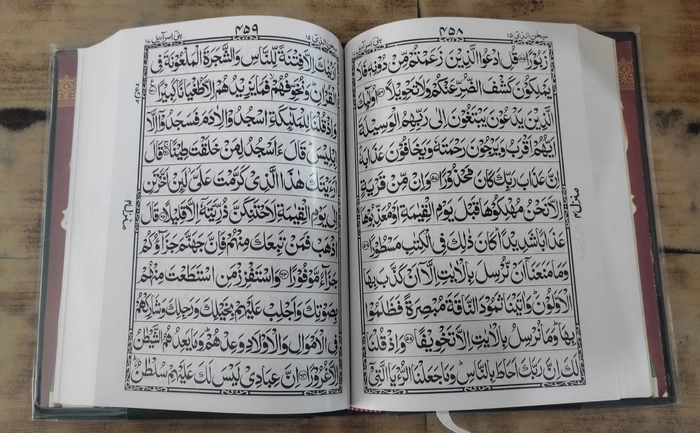 سبحٰن الذی ۱۵
۴۵۸
بنی اسرآءیل ۱۷
زَبُوۡرًا ۵۵ قُلِ ادۡعُوا الَّذِيۡنَ زَعَمۡتُمۡ مِّنۡ دُوۡنِهٖ فَلَا
يَمۡلِكُوۡنَ كَشۡفَ الضُّرِّ عَنۡكُمۡ وَلَا تَحۡوِيۡلًا ۵۶ اُولٰٓئِكَ
الَّذِيۡنَ يَدۡعُوۡنَ يَبۡتَغُوۡنَ اِلٰى رَبِّهِمُ الۡوَسِيۡلَةَ
اَيُّهُمۡ اَقۡرَبُ وَيَرۡجُوۡنَ رَحۡمَتَهٗ وَيَخَافُوۡنَ عَذَابَهٗ
اِنَّ عَذَابَ رَبِّكَ كَانَ مَحۡذُوۡرًا ۵۷ وَاِنۡ مِّنۡ قَرۡيَةٍ
اِلَّا نَحۡنُ مُهۡلِكُوۡهَا قَبۡلَ يَوۡمِ الۡقِيٰمَةِ اَوۡ مُعَذِّبُوۡهَا
عَذَابًا شَدِيۡدًا كَانَ ذٰلِكَ فِى الۡكِتٰبِ مَسۡطُوۡرًا ۵۸
وَمَا مَنَعَنَاۤ اَنۡ نُّرۡسِلَ بِالۡاٰيٰتِ اِلَّاۤ اَنۡ كَذَّبَ بِهَا
الۡاَوَّلُوۡنَ وَاٰتَيۡنَا ثَمُوۡدَ النَّاقَةَ مُبۡصِرَةً فَظَلَمُوۡا
بِهَا وَمَا نُرۡسِلُ بِالۡاٰيٰتِ اِلَّا تَخۡوِيۡفًا ۵۹ وَاِذۡ قُلۡنَا
لَكَ اِنَّ رَبَّكَ اَحَاطَ بِالنَّاسِ وَمَا جَعَلۡنَا الرُّءۡيَا الَّتِىۡۤ
منزل ۴
سبحٰن الذی ۱۵
۴۵۹
بنی اسرآءیل ۱۷
اَرَيۡنٰكَ اِلَّا فِتۡنَةً لِّلنَّاسِ وَالشَّجَرَةَ الۡمَلۡعُوۡنَةَ فِى
الۡقُرۡاٰنِ وَنُخَوِّفُهُمۡ فَمَا يَزِيۡدُهُمۡ اِلَّا طُغۡيَانًا كَبِيۡرًا ۶۰
وَاِذۡ قُلۡنَا لِلۡمَلٰٓئِكَةِ اسۡجُدُوۡا لِاٰدَمَ فَسَجَدُوۡۤا اِلَّاۤ
اِبۡلِيۡسَ قَالَ ءَاَسۡجُدُ لِمَنۡ خَلَقۡتَ طِيۡنًا ۶۱ قَالَ
اَرَءَيۡتَكَ هٰذَا الَّذِىۡ كَرَّمۡتَ عَلَىَّ لَٮِٕنۡ اَخَّرۡتَنِ
اِلٰى يَوۡمِ الۡقِيٰمَةِ لَاَحۡتَنِكَنَّ ذُرِّيَّتَهٗۤ اِلَّا قَلِيۡلًا ۶۲ قَالَ
اذۡهَبۡ فَمَنۡ تَبِعَكَ مِنۡهُمۡ فَاِنَّ جَهَنَّمَ جَزَآؤُكُمۡ
جَزَآءً مَّوۡفُوۡرًا ۶۳ وَاسۡتَفۡزِزۡ مَنِ اسۡتَطَعۡتَ مِنۡهُمۡ
بِصَوۡتِكَ وَاَجۡلِبۡ عَلَيۡهِمۡ بِخَيۡلِكَ وَرَجِلِكَ وَشَارِكۡهُمۡ
فِى الۡاَمۡوَالِ وَالۡاَوۡلَادِ وَعِدۡهُمۡ وَمَا يَعِدُهُمُ الشَّيۡطٰنُ
اِلَّا غُرُوۡرًا ۶۴ اِنَّ عِبَادِىۡ لَيۡسَ لَكَ عَلَيۡهِمۡ سُلۡطٰنٌ
منزل ۴